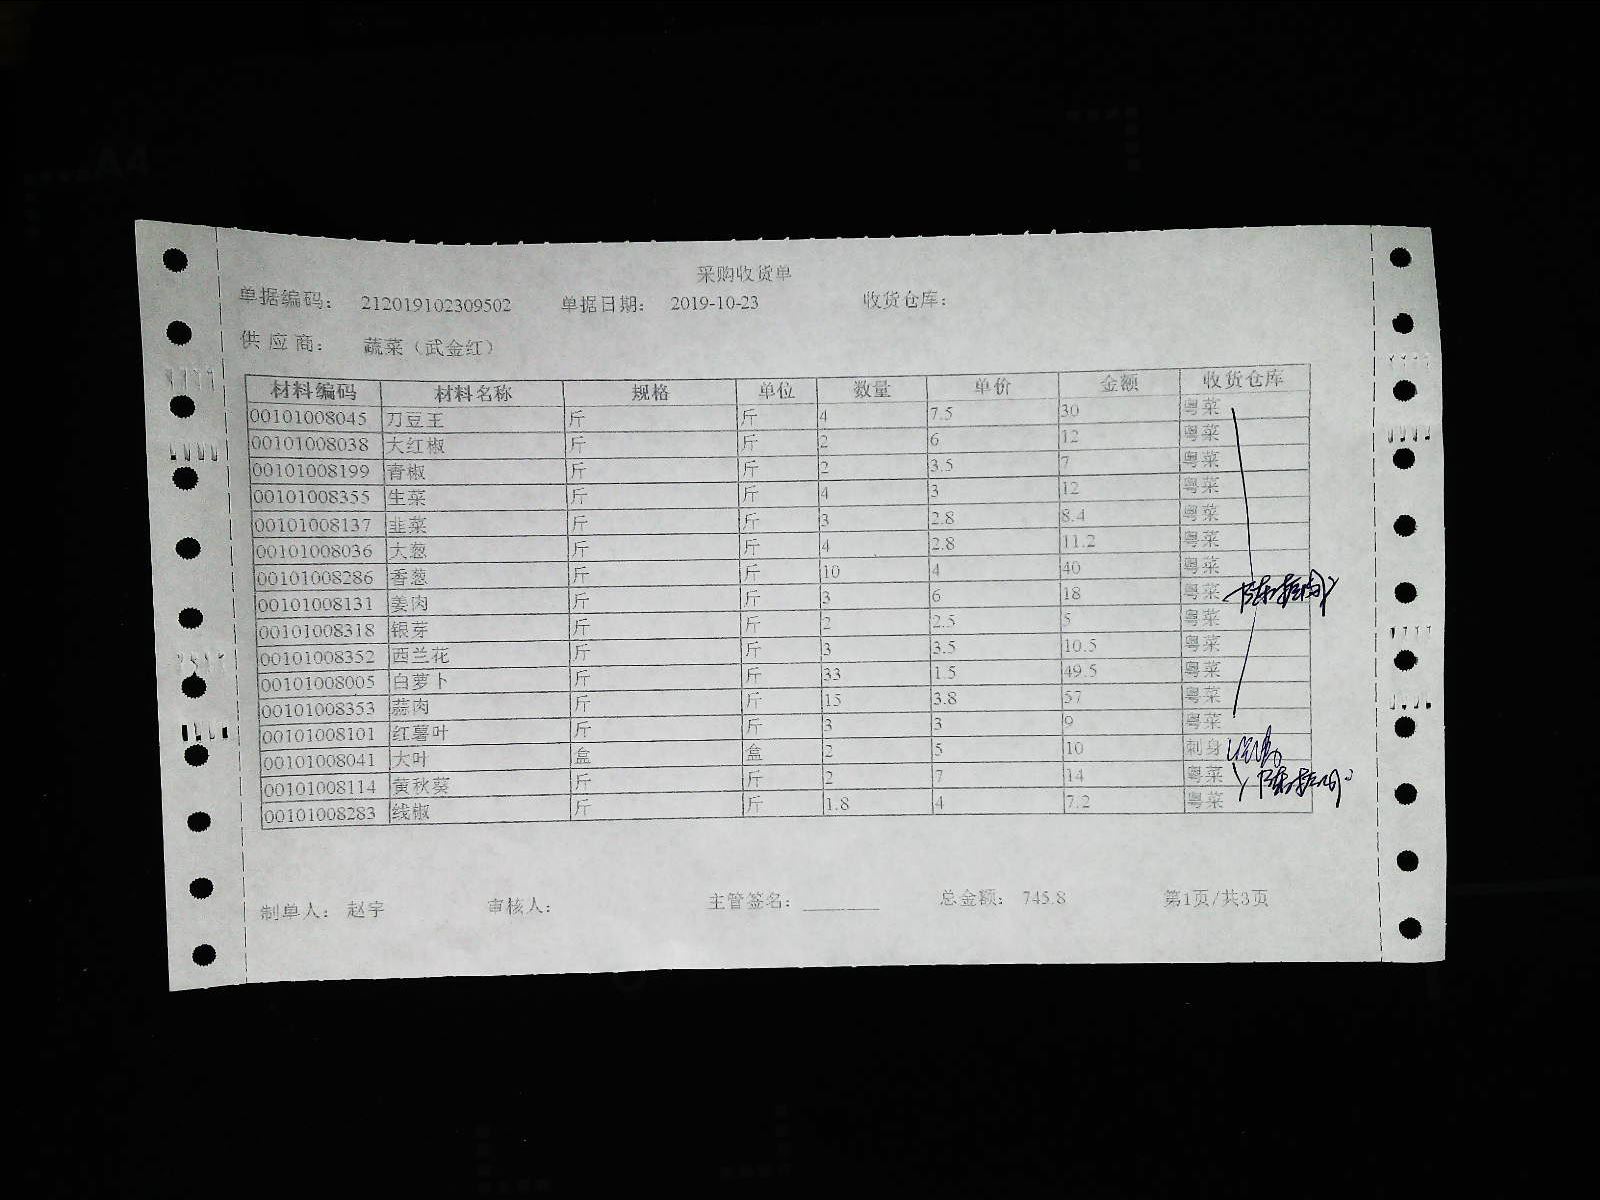 采购收货单
单据编码： 212019102309502 单据日期： 2019-10-23 收货仓库：
供 应 商： 蔬菜（武金红）
材料编码 材料名称 规格 单位 数量 单价 金额 收货仓库
00101008045 刀豆王 斤 斤 4 7.5 30 粤菜
00101008038 大红椒 斤 斤 2 6 12 粤菜
00101008199 青椒 斤 斤 2 3.5 7 粤菜
00101008355 生菜 斤 斤 4 3 12 粤菜
00101008137 韭菜 斤 斤 3 2.8 8.4 粤菜
00101008036 大葱 斤 斤 4 2.8 11.2 粤菜
00101008286 香葱 斤 斤 10 4 40 粤菜
00101008131 姜肉 斤 斤 3 6 18 粤菜
00101008318 银芽 斤 斤 2 2.5 5 粤菜
00101008352 西兰花 斤 斤 3 3.5 10.5 粤菜
00101008005 白萝卜 斤 斤 33 1.5 49.5 粤菜
00101008353 蒜肉 斤 斤 15 3.8 57 粤菜
00101008101 红薯叶 斤 斤 3 3 9 粤菜
00101008041 大叶 盒 盒 2 5 10 刺身
00101008114 黄秋葵 斤 斤 2 7 14 粤菜
00101008283 线椒 斤 斤 1.8 4 7.2 粤菜
制单人： 赵宇 审核人： 主管签名： 总金额： 745.8 第1页/共3页